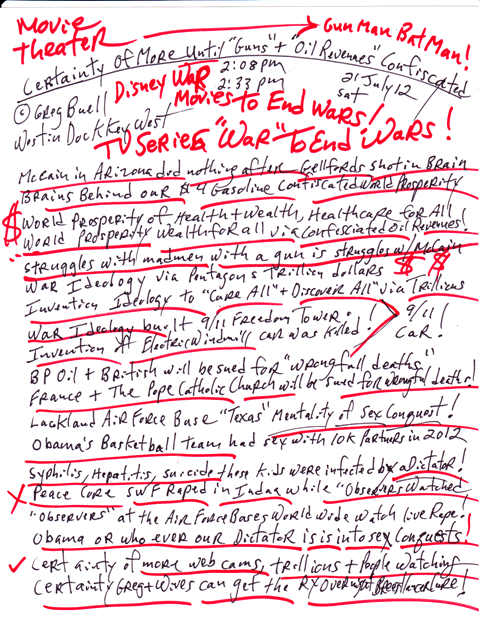 Movie Theater → Gun Man Bat Man!
Certainty of More Until "Guns" + "Oil Revenues" Confiscated
Disney War 2:08pm 2:33pm 21 July 12 Sat
© Greg Buell
Westin Dock Key West
Movies to End Wars!
TV Series "War" To End Wars!
McCain in Arizona did nothing after Gellfords shot in Brain
Brains Behind our $4 Gasoline Confiscated World Prosperity
$ World Prosperity of Health + Wealth, Healthcare for All
World Prosperity Wealth for all via Confisciated Oil Revenues!
struggles with madmen with a gun is struggles w/ McCain
War Ideology via Pentagons Trillion dollars $ $
Invention Ideology to "Cure All" + Discover All" via Trillions
War Ideology built 9/11 Freedom Tower! 9/11
Invention of Electric Windmill car was killed! Car!
BP Oil + British will be sued for "wrongfull deaths"
France + The Pope Catholic Church will be sued for wrongful deaths!
Lackland Air Force Base "Texas" Mentality of sex Conquest!
Obama's Basketball team had sex with 10K Partners in 2012
Syphilis, Hepatitis, suicide these kids were infected by a Dictator!
X Peace Core SWF Raped in India while "Observers Watched
"Observers" at the Air Force Bases World Wide watch live Rape!
Obama or who ever our Dictator is is into sex Conquests!
✓ Certainty of more web cams, trillions + People Watching
Certainty Greg + Wives can get the Rx Overnight Breast Cancer Cure!